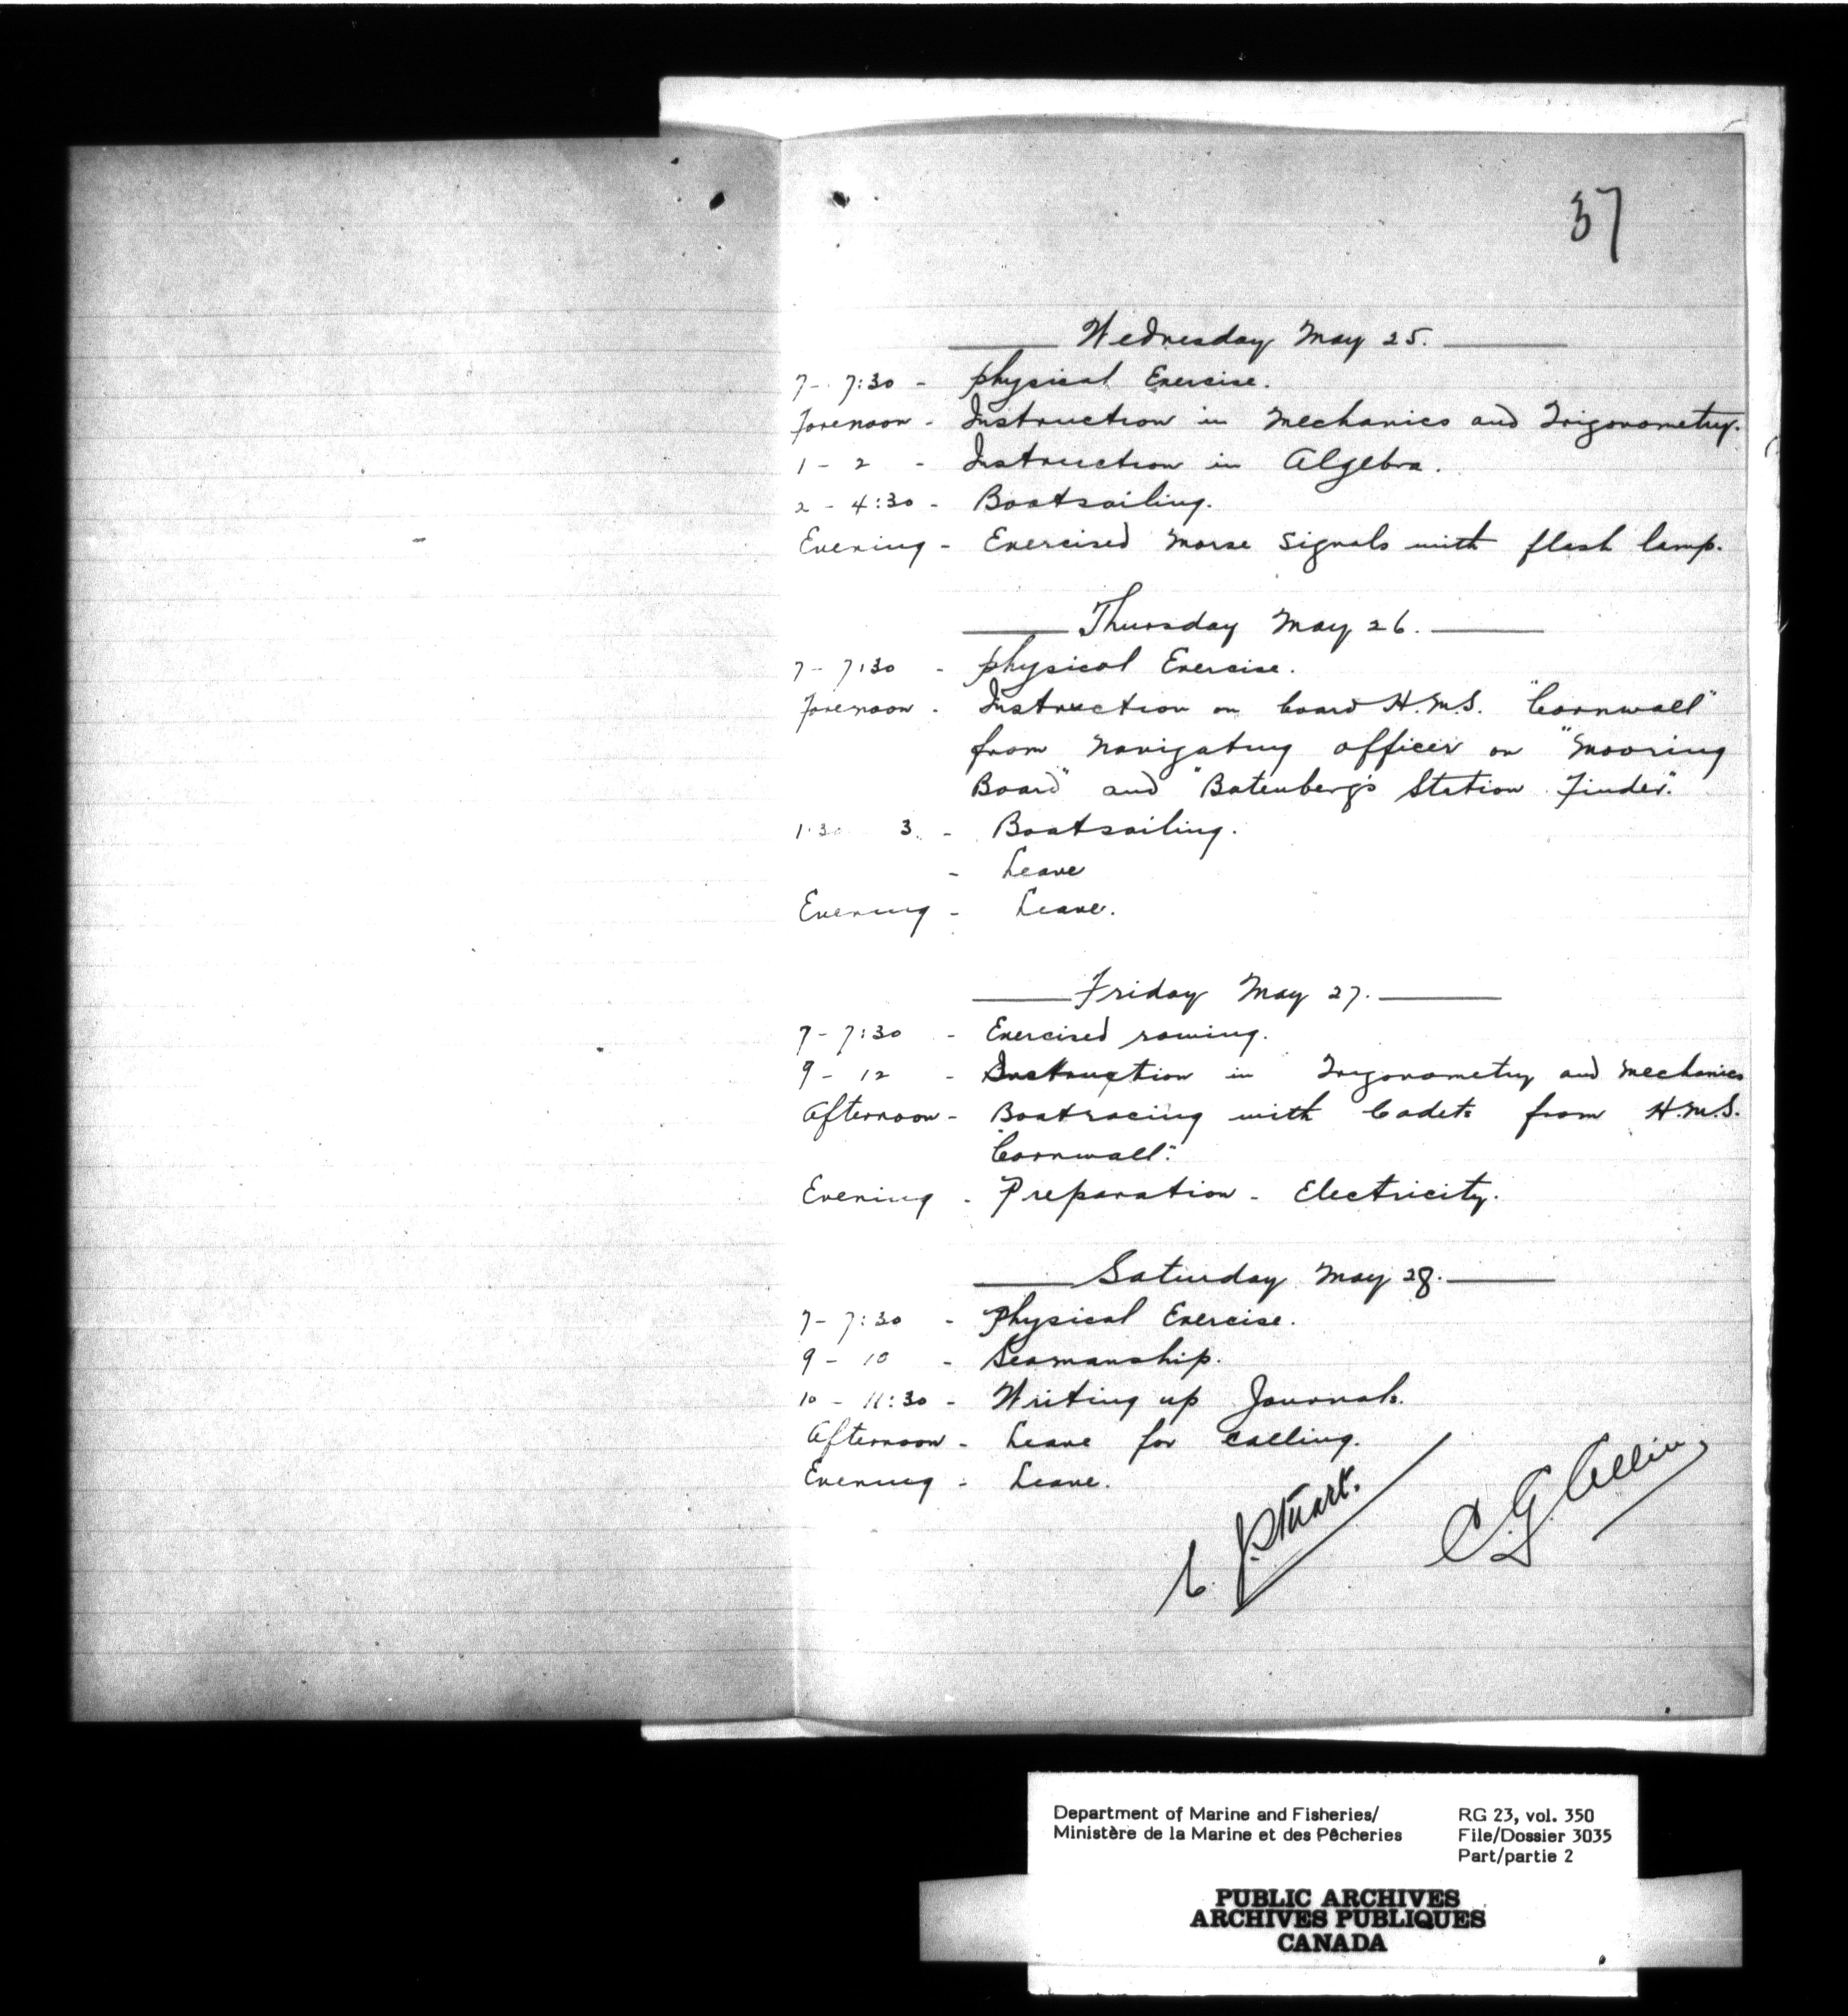 37
Wednesday May 25.
7 - 7:30 - physical Exercise.
Forenoon - Instruction in Mechanics and Trigonometry.
1 - 2 - Instruction in Algebra.
2 - 4:30 - Boatsailing.
Evening - Exercised Morse Signals with flash lamp.
Thursday May 26.
7 - 7:30 - physical Exercise.
Forenoon - Instruction on board H.M.S. "Cornwall"
from Navigating officer on "Mooring
Board" and "Batenberg's Station Finder."
1:30 3 - Boatsailing.
- Leave
Evening - Leave.
Friday May 27.
7 - 7:30 - Exercised rowing.
9 - 12 - Instruction in Trigonometry and Mechanics
Afternoon - Boatracing with Cadets from H.M.S.
"Cornwall".
Evening - Preparation - Electricity.
Saturday May 28.
7 - 7:30 - Physical Exercise.
9 - 10 - Seamanship.
10 - 11:30 - Writing up Journals.
Afternoon - Leave for calling.
Evening - Leave.
C. J. Stuart.
C G Allin
Department of Marine and Fisheries/
Ministère de la Marine et des Pêcheries
RG 23, vol. 350
File/Dossier 3035
Part/partie 2
PUBLIC ARCHIVES
ARCHIVES PUBLIQUES
CANADA